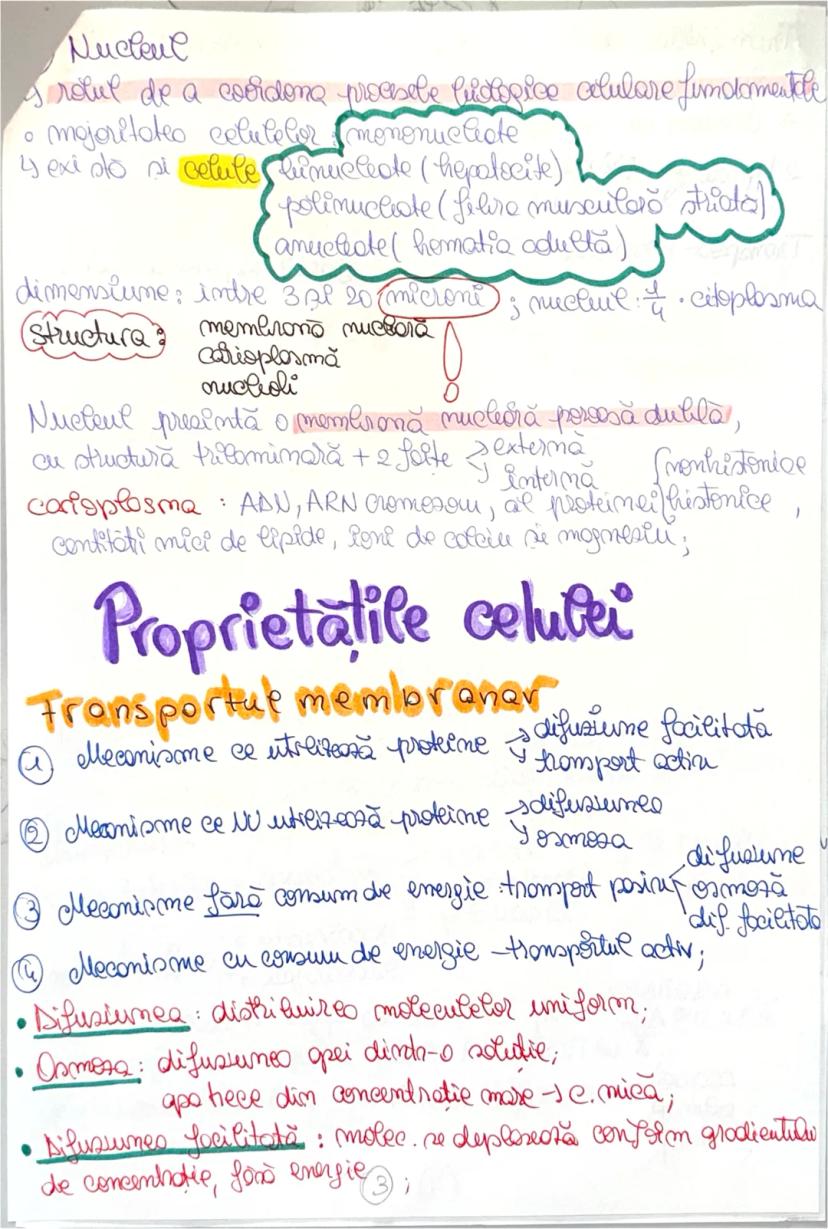 Nucleul
↳ rolul de a coordona procesele biologice celulare fundamentale
o majoritatea celulelor: mononucleate
↳ există și celule binucleate (hepatocite)
polinucleate (fibra musculară striată)
anucleate (hematia adultă)
dimensiune: între 3 și 20 microni; nucleul: 1/4 · citoplasma
structura: membrană nucleară
carioplasmă
nucleoli
!
Nucleul prezintă o membrană nucleară poroasă dublă,
cu structură trilaminară + 2 foițe → externă
→ internă
carioplasma: ADN, ARN cromozom, al proteinei { nonhistonice
histonice,
cantități mici de lipide, ioni de calciu și magneziu;
Proprietățile celulei
Transportul membranar
① Mecanisme ce utilizează proteine → difuziune facilitată
→ transport activ
② Mecanisme ce NU utilizează proteine → difuziunea
→ osmoza
③ Mecanisme fără consum de energie: transport pasiv difuziune
osmoză
dif. facilitato
④ Mecanisme cu consum de energie - transportul activ;
• Difuziunea: distribuirea moleculelor uniform;
• Osmoza: difuziunea apei dintr-o soluție;
apa trece din concentrație mare → c. mică;
• Difuziunea facilitată: molec. se deplasează conform gradientului
de concentrație, fără energie;
3